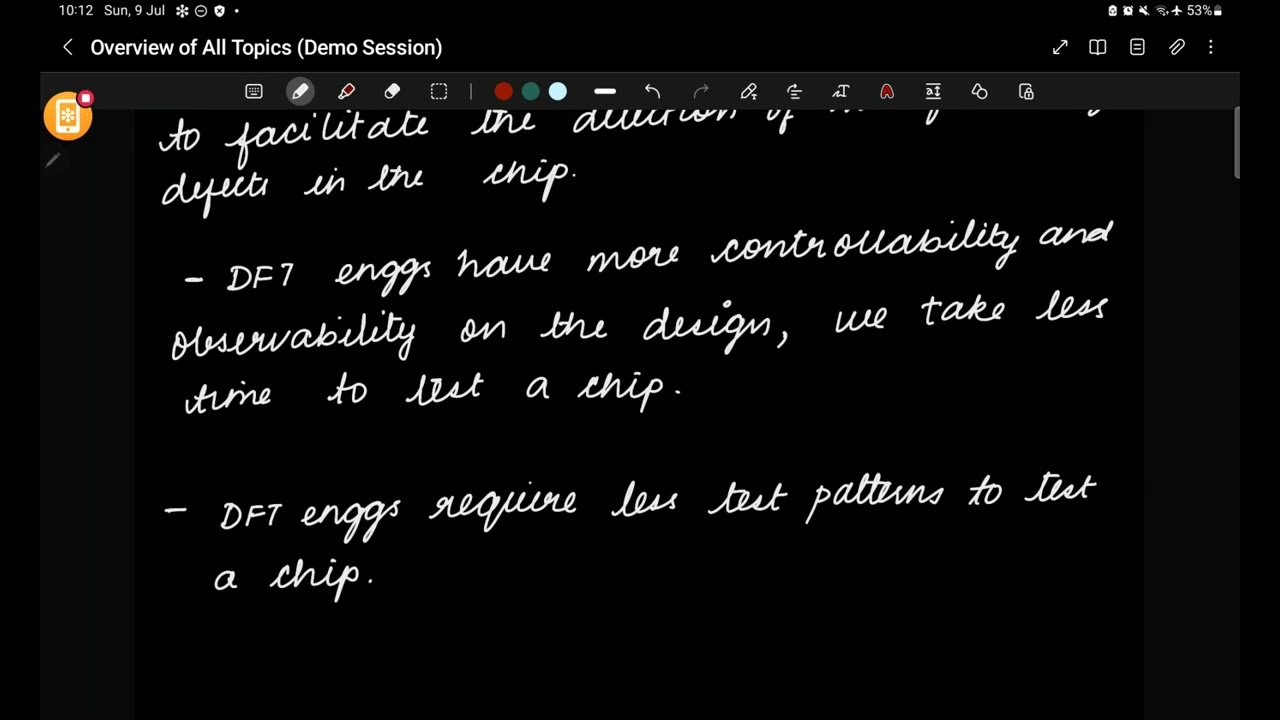 10:12 Sun, 9 Jul
53%
Overview of All Topics (Demo Session)
to facilitate the detection of
defects in the chip.
- DFT enggs have more controllability and
observability on the design, we take less
time to test a chip.
- DFT enggs require less test patterns to test
a chip.